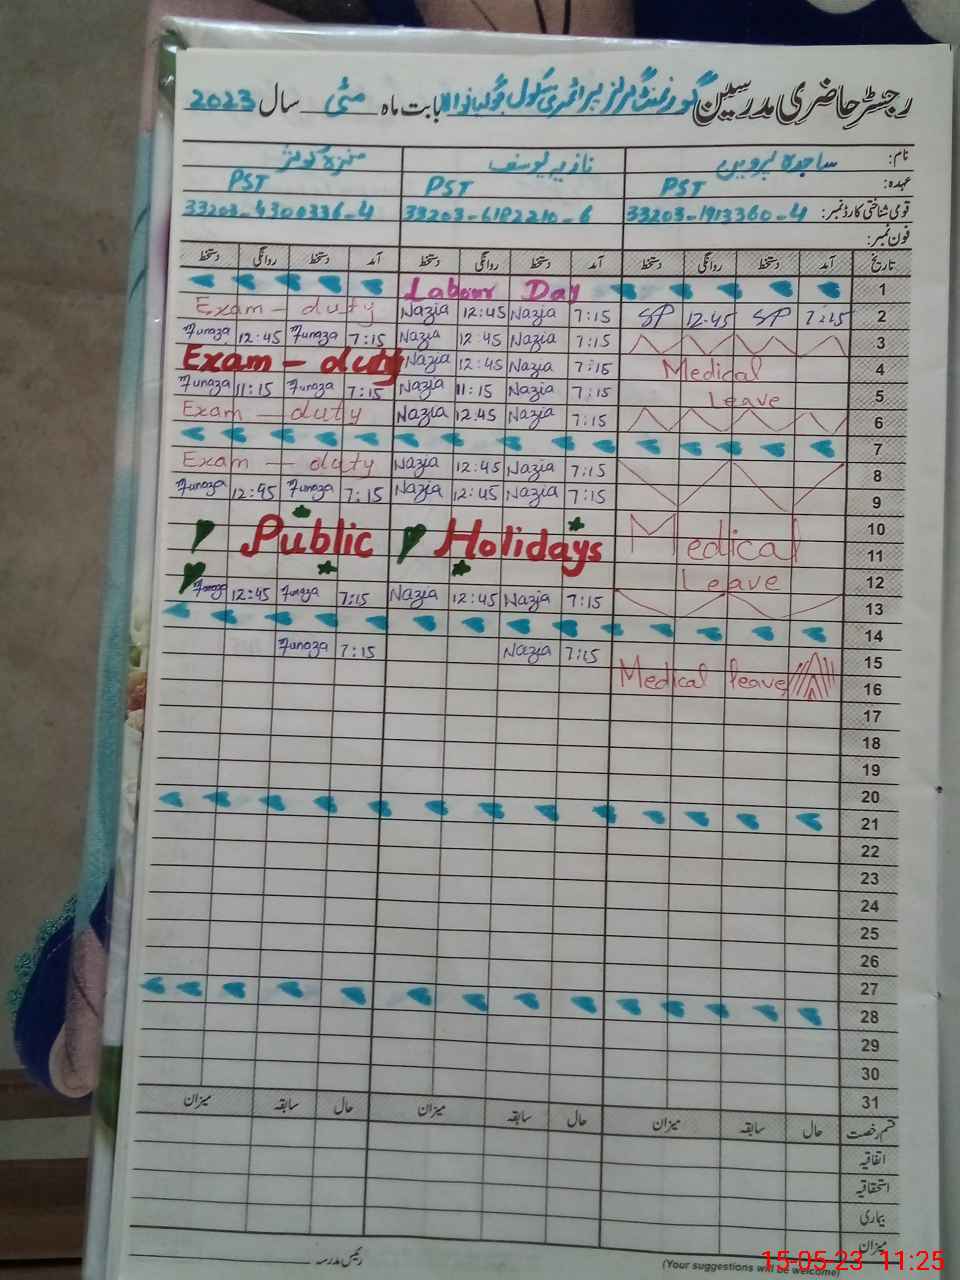 رجسٹر حاضری مدرسین گورنمنٹ گرلز پرائمری سکول بابت ماہ مئی سال 2023
نام: ساجدہ پروین نازیہ یوسف
عہدہ: PST PST PST
قومی شناختی کارڈ نمبر: 33203-1913360-4 33203-6182210-6 33203-4300336-4
فون نمبر:
تاریخ آمد دستخط روانگی دستخط آمد دستخط روانگی دستخط آمد دستخط روانگی دستخط
1 Labour Day
2 7:15 SP 12:45 SP 7:15 Nazia 12:45 Nazia Exam - duty
3 7:15 Nazia 12:45 Nazia 7:15 Funaza 12:45 Funaza
4 Medical 7:15 Nazia 12:45 Nazia Exam - duty
5 Leave 7:15 Nazia 11:15 Nazia 7:15 Funaza 11:15 Funaza
6 7:15 Nazia 12:45 Nazia Exam - duty
7
8 7:15 Nazia 12:45 Nazia Exam - duty
9 7:15 Nazia 12:45 Nazia 7:15 Funaza 12:45 Funaza
10 Medical Public Holidays
11
12 Leave
13 7:15 Nazia 12:45 Nazia 7:15 Funaza 12:45 Funaza
14
15 7:15 Nazia 7:15 Funaza
16 Medical leave
17
18
19
20
21
22
23
24
25
26
27
28
29
30
31
قسم رخصت حال سابقہ میزان حال سابقہ میزان حال سابقہ میزان
اتفاقیہ
استحقاقیہ
بیماری
میزان
رئیس مدرسہ
(Your suggestions will be welcome)
15-05-23 11:25